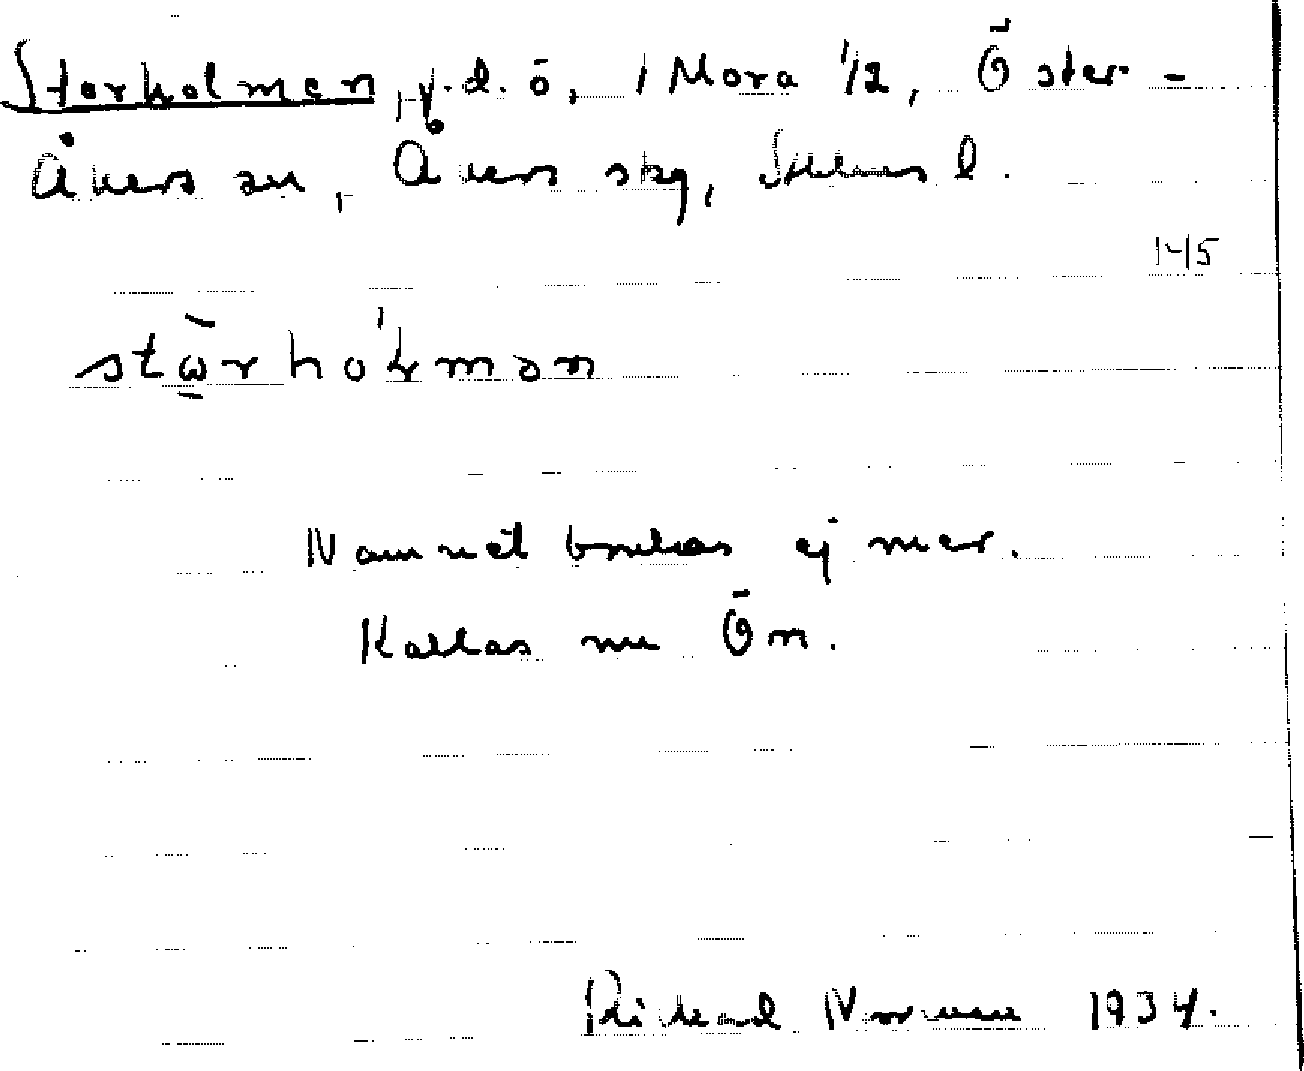 Storholmen, f.d. ö, 1 Mora 1/2, Öster-
Åkers sn, Åkers skg, Sthms l.
145
stω̄̀rhól̥mən
Namnet brukas ej mer.
Kallas nu Ön.
Rikard Norman 1934.